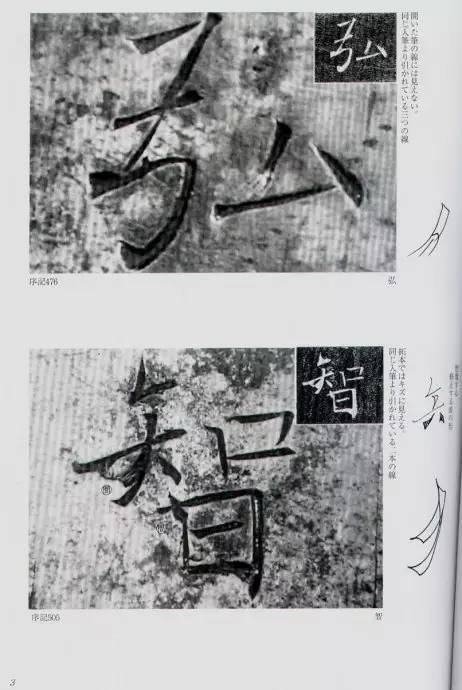 弘
弘
開いた筆の線には見えない。
同じ入筆より引かれている三つの線
序記476
弘
智
智
拓本ではキズに見える。
同じ入筆より引かれている二本の線
序記505
智
3